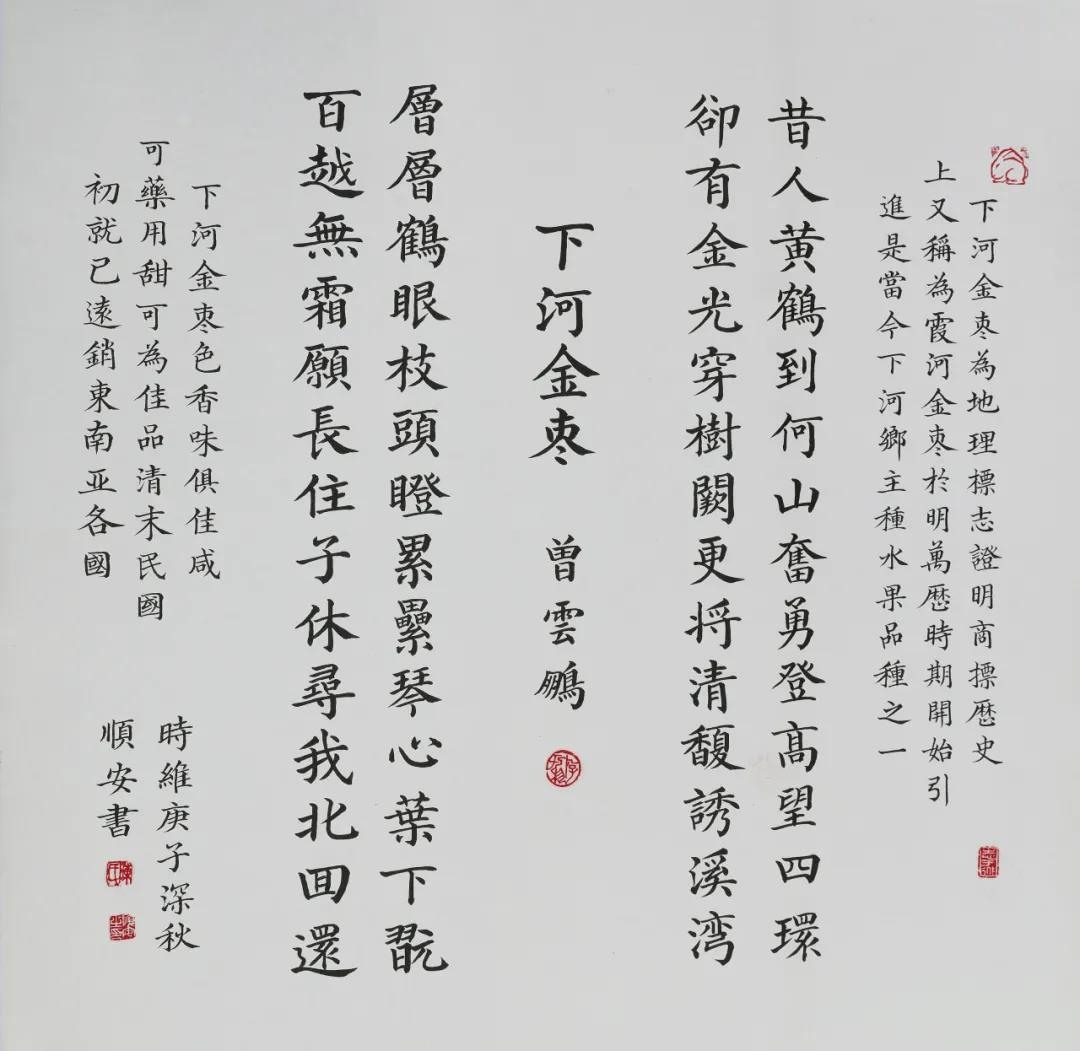 下河金枣為地理標志證明商標歷史
上又稱為霞河金枣於明萬歷時期開始引
進是當今下河鄉主種水果品種之一
昔人黄鶴到何山奮勇登高望四環
卻有金光穿樹闕更將清馥誘溪湾
下河金枣 曾雲鵬
層層鶴眼枝頭瞪累纍琴心葉下翫
百越無霜願長住子休尋我北囬還
下河金枣色香味俱佳咸
可藥用甜可為佳品清末民國
初就已遠銷東南亚各國
時維庚子深秋
順安書